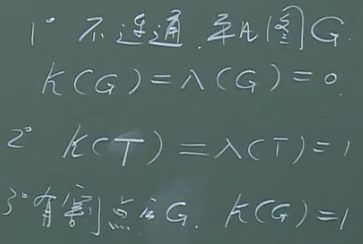 1° 不连通、平凡图G
K(G)=λ(G)=0.
2° K(T)=λ(T)=1
3° 有割点的G. K(G)=1